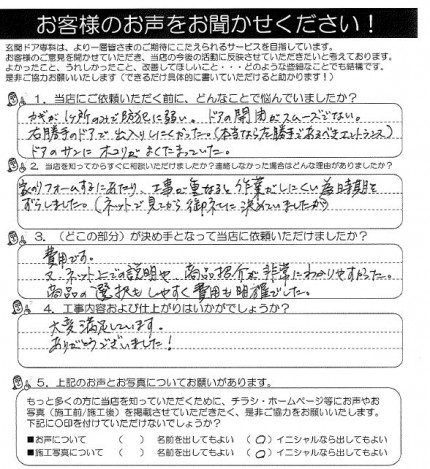 お客様のお声をお聞かせください！
玄関ドア専科は、より一層皆さまのご期待にこたえられるサービスを目指しています。
お客様のご意見を聞かせていただき、当店の今後の活動に反映させていただきたいと考えております。
よかったこと、うれしかったこと、改善してほしいこと・・・どのような些細なことでも結構です。
是非ご協力お願いいたします（できるだけ具体的に書いていただけると助かります！）
１．当店にご依頼いただく前に、どんなことで悩んでいましたか？
カギが1ヶ所のみで防犯に弱い。ドアの開閉がスムーズでない。
右勝手のドアで出入りしにくかった。（本当なら左勝手であるべきエントランス）
ドアのサンにホコリがよくたまっていた。
２．当店を知ってからすぐに相談いただけましたか？連絡しなかった場合はどんな理由がありましたか？
家のリフォームするにあたり、工事が重なると作業がしにくい為時期を
ずらしました。（ネットで見てから御社に決めていましたが）
３．（どこの部分）が決め手となって当店に依頼いただけましたか？
費用です。
又、ネット上での説明や商品紹介が非常にわかりやすかった。
商品の選択もしやすく費用も明確でした。
４．工事内容および仕上がりはいかがでしょうか？
大変満足しています。
ありがとうございました！
５．上記のお声とお写真についてお願いがあります。
もっと多くの方に当店を知っていただくために、チラシ・ホームページ等にお声やお
写真（施工前/施工後）を掲載させていただきたく、是非ご協力をお願いいたします。
下記に〇印を付けていただけないでしょうか？
■お声について （ ） 名前を出してもよい （〇）イニシャルなら出してもよい
■施工写真について （ ） 名前を出してもよい （〇）イニシャルなら出してもよい